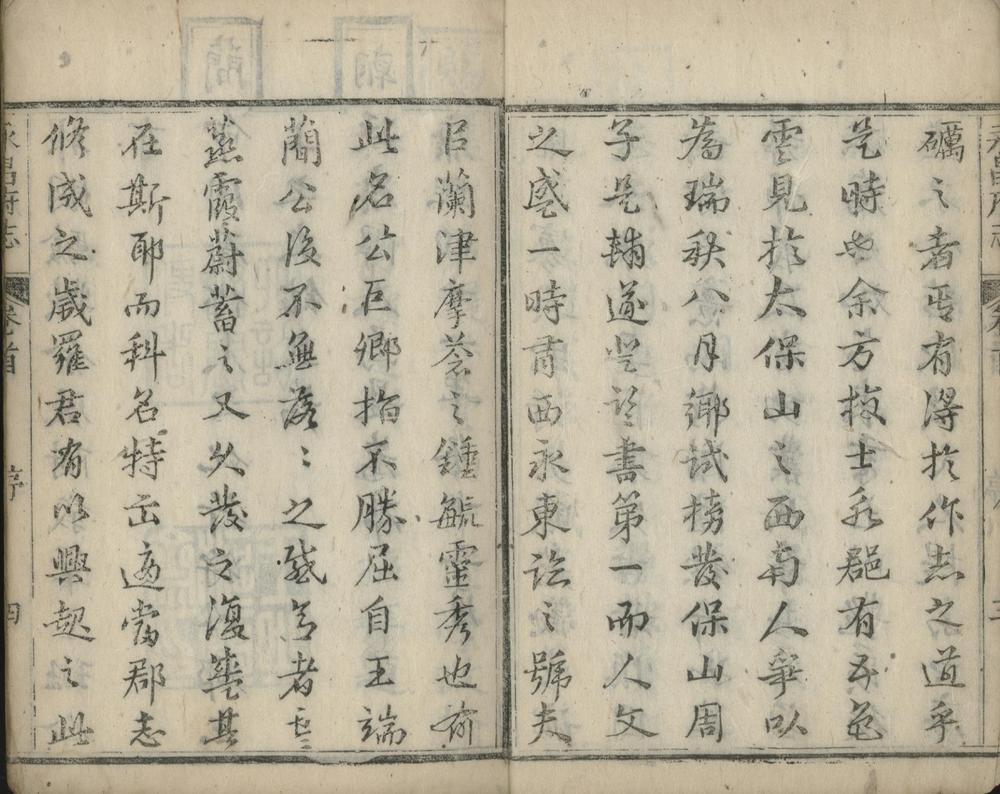 礪之者再有得於作志之道乎
是時也余方掄士永郡有五色
雲見於太保山之西南人爭以
為瑞秋八月鄉試榜發保山周
子是輔遂登
書第一而人文
之盛一時有西永東訟之號夫
巨蘭津摩蒼之鍾毓靈秀也前
此名公巨卿指不勝屈自王端
簡公後不無落落之感焉者雲
蒸霞蔚蓄之又久發之復華其
在斯耶而科名特出適當郡志
修成之歲羅君有以興起之此
永昌府志 卷首 序 四